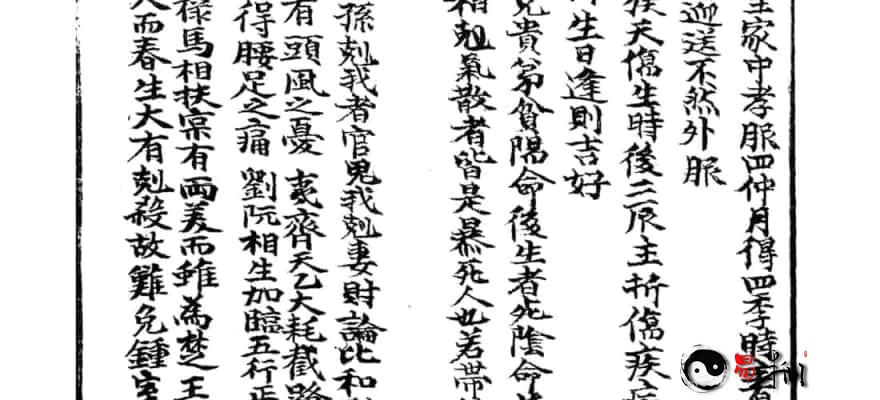 家中孝服四仲月得四季時
迎送不然外服
天傷生時後三辰主折傷疾
生日逢則吉好
貴弟貧陽命後生者死陰命
相剋氣散者皆是暴死人也若帶
孫剋我者官鬼我剋妻財論比和
有頭風之憂 夷齊天乙大耗截路
得腰足之痛 劉阮相生加臨五行
祿馬相扶窠有兩羙而雖為楚王
而春生大有剋殺故難免鍾